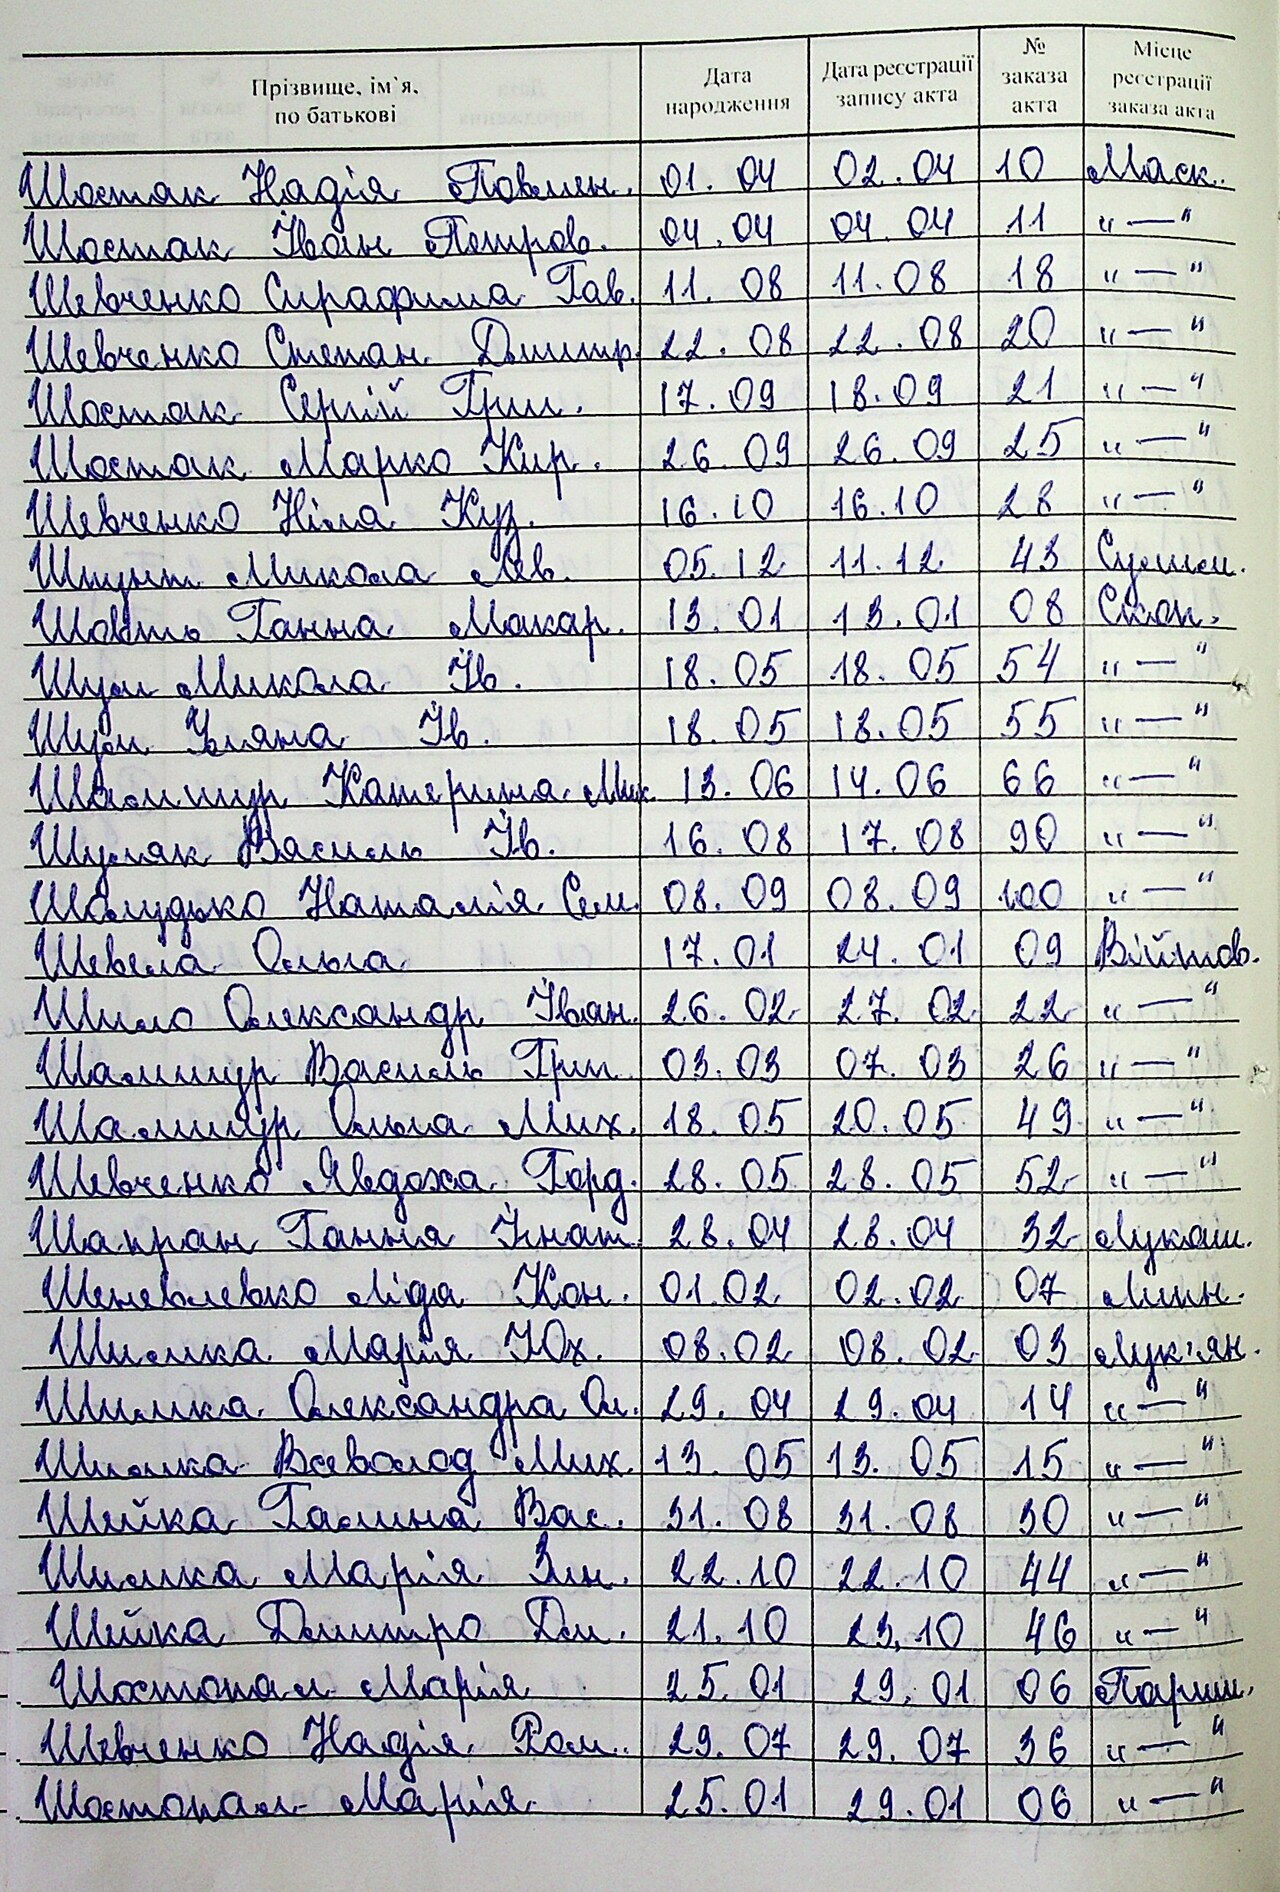 Прізвище, ім`я, по батькові Дата народження Дата реєстрації запису акта № заказа акта Місце реєстрації заказа акта
Шостак Надія Павлен. 01.04 02.04 10 Маск.
Шостак Іван Петров. 04.04 04.04 11 "—"
Шевченко Сирафима Гав. 11.08 11.08 18 "—"
Шевченко Степан Дмитр. 22.08 22.08 20 "—"
Шостак Сергій Григ. 17.09 18.09 21 "—"
Шостак Марко Кир. 26.09 26.09 25 "—"
Шевченко Ніла Куз. 16.10 16.10 28 "—"
Шпунт Микола Лев. 05.12 11.12 43 Сулим.
Шовть Ганна Макар. 13.01 13.01 08 Скоп.
Шум Микола Ів. 18.05 18.05 54 "—"
Шум Уляна Ів. 18.05 18.05 55 "—"
Шалимур Катерина Мих. 13.06 14.06 66 "—"
Шуляк Василь Ів. 16.08 17.08 90 "—"
Шолудько Наталія Сем. 08.09 08.09 100 "—"
Шевела Ольга 17.01 24.01 09 Війтов.
Шило Олександр Іван. 26.02 27.02 22 "—"
Шалимур Василь Григ. 03.03 07.03 26 "—"
Шалимур Ольга Мих. 18.05 20.05 49 "—"
Шевченко Явдоха Горд. 28.05 28.05 52 "—"
Шапран Ганна Ігнат. 28.04 28.04 32 Лукаш.
Шеневлевко Ліда Кон. 01.02 02.02 07 Лин.
Шилка Марія Юх. 08.02 08.02 03 Лук'ян.
Шилка Олександра Ол. 29.04 29.04 14 "—"
Шилка Всеволод Мих. 13.05 13.05 15 "—"
Шийка Галина Вас. 31.08 31.08 30 "—"
Шилка Марія Зін. 22.10 22.10 44 "—"
Шийка Дмитро Дм. 21.10 23.10 46 "—"
Шостопал Марія 25.01 29.01 06 Париш.
Шевченко Надія Ром. 29.07 29.07 36 "—"
Шостопал Марія 25.01 29.01 06 "—"